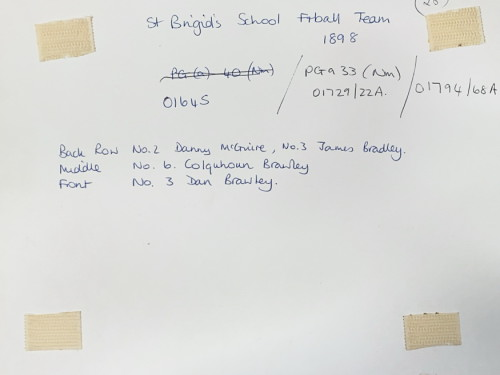 (28)
St Brigid's School Ftball Team
1898
PG (a) 40 (Nm) / PGa 33 (Nm) /
0164S / 01729/22A. / 01794/68A
Back Row No.2 Danny McGuire, No.3 James Bradley.
Middle No. 6. Colquhoun Brawley
Front No. 3 Dan Brawley.